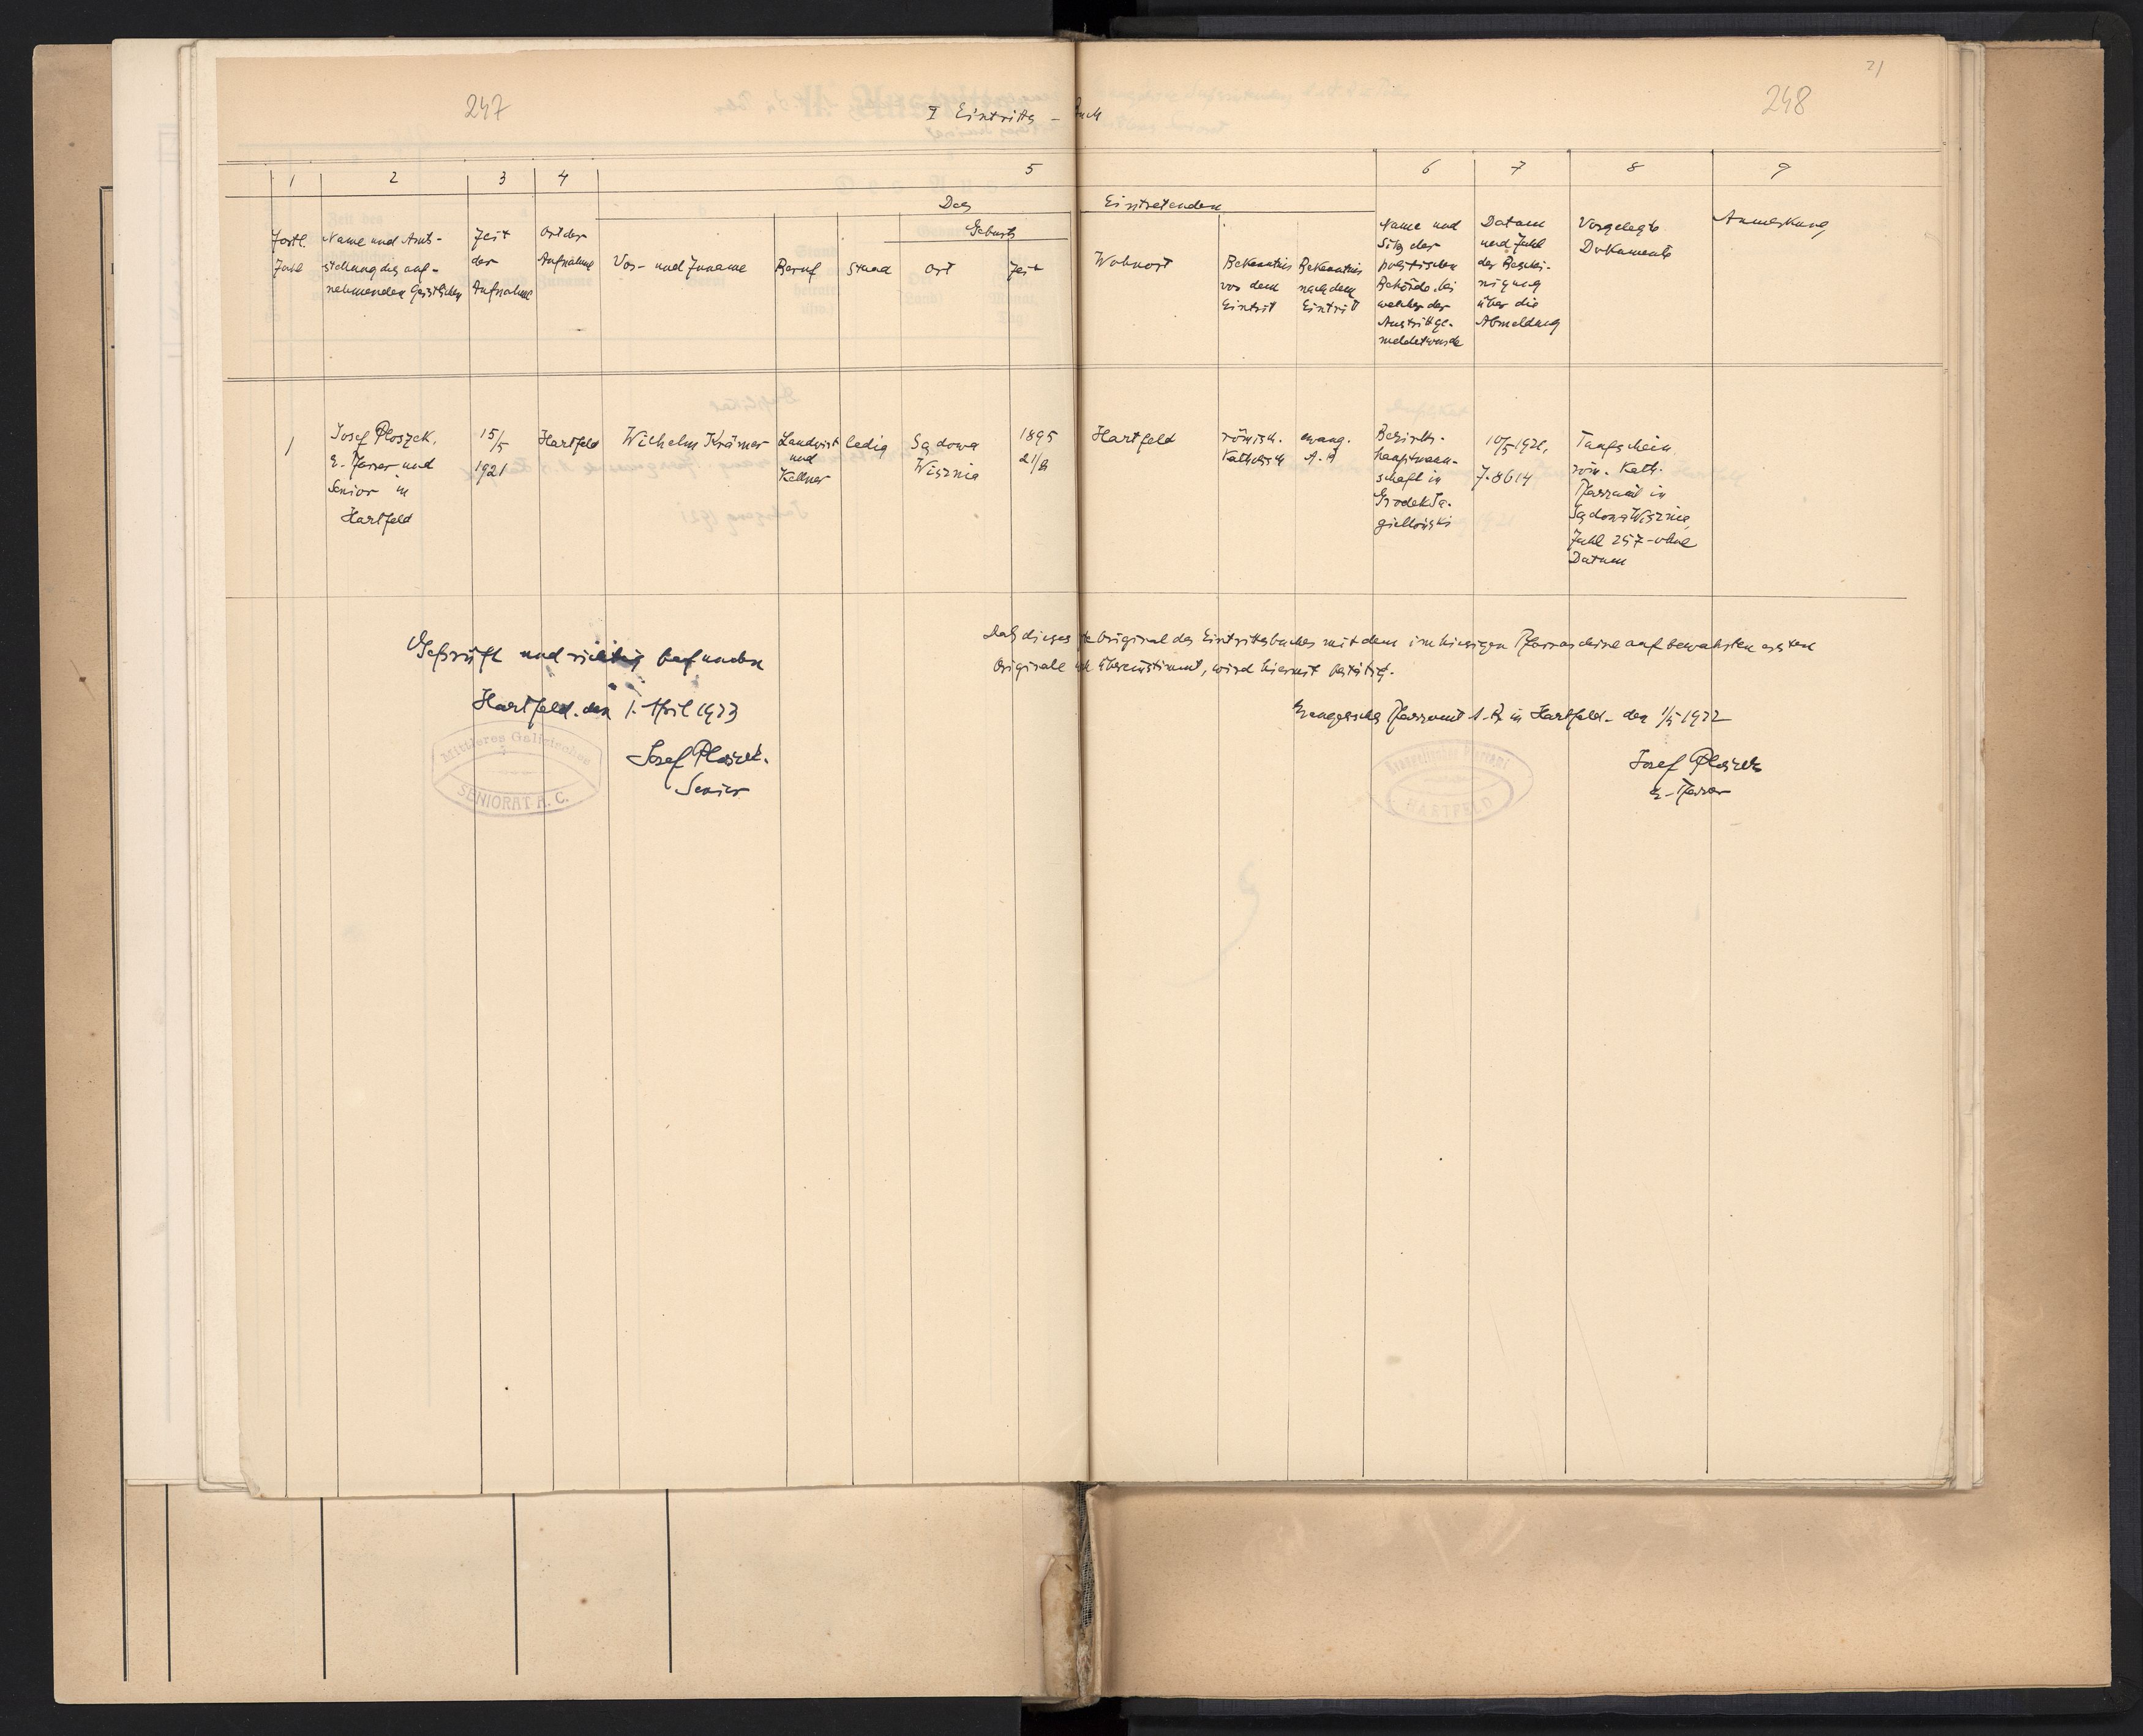 247
248
21
I Eintritts-Buch
1 2 3 4 5 6 7 8 9
Des Eintretenden
Fortl.
Zahl
Name und Amts-
stellung des auf-
nehmenden Geistlichen
Zeit
der
Aufnahme
Ort der
Aufnahme
Vor- und Zuname
Beruf
Stand
Geburts
Ort
Zeit
Wohnort
Bekenntnis
vor dem
Eintrit
Bekenntnis
nach dem
Eintrit
Name und
Sitz der
politischen
Behörde bei
welcher der
Austritt ge-
meldet wurde
Datum
und Zahl
der Beschei-
nigung
über die
Abmeldung
Vorgelegte
Dokumente
Anmerkung
1
Josef Ploszek,
E. Pfarrer und
Senior in
Hartfeld
15/5
1921
Hartfeld
Wilhelm Krämer
Landwirt
und
Kellner
ledig
Sądowa
Wisznia
1895
21/8
Hartfeld
römisch-
katholisch
evang.
A. B
Bezirks-
hauptmann-
schaft in
Grodek Ja-
gielloński
10/5 1921,
Z. 8614
Taufschein
röm. Kath.
Pfarramt in
Sądowa Wisznia,
Zahl 257 - ohne
Datum
Geprüft und richtig befunden
Hartfeld, den 1. April 1923
Josef Ploszek.
Senior
Mittleres Galizisches
SENIORAT A. C.
Daß dieses Original des Eintrittsbuches mit dem im hiesigen Pfarrarchive aufbewahrten ersten
Originale übereinstimmt, wird hiermit bestätigt.
Evangelisches Pfarramt A. B. in Hartfeld, den 1/5 1922
Josef Ploszek
E. Pfarrer
Evangelisches Pfarramt
HARTFELD